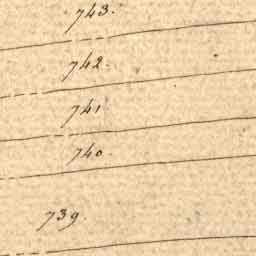 743.
742.
741
740.
739.